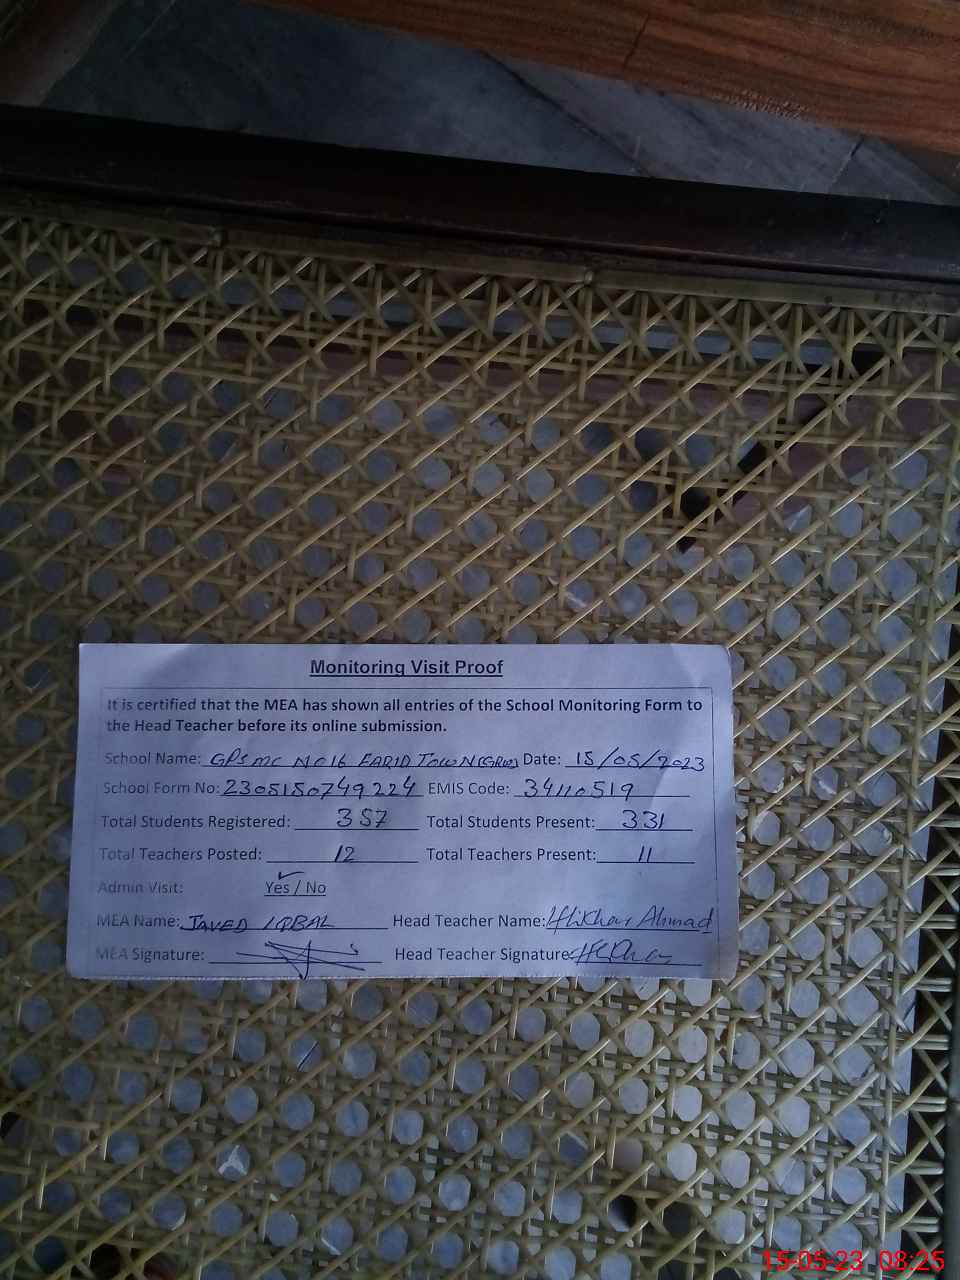 Monitoring Visit Proof
It is certified that the MEA has shown all entries of the School Monitoring Form to
the Head Teacher before its online submission.
School Name: GPS MC NO 16 FARID TOWN Date: 15/05/2023
School Form No: 2305150749224 EMIS Code: 34110519
Total Students Registered: 357 Total Students Present: 331
Total Teachers Posted: 12 Total Teachers Present: 11
Admin Visit: Yes / No
MEA Name: JAVED IQBAL Head Teacher Name: Iftikhar Ahmad
MEA Signature: Head Teacher Signature:
15-05-23 08:25